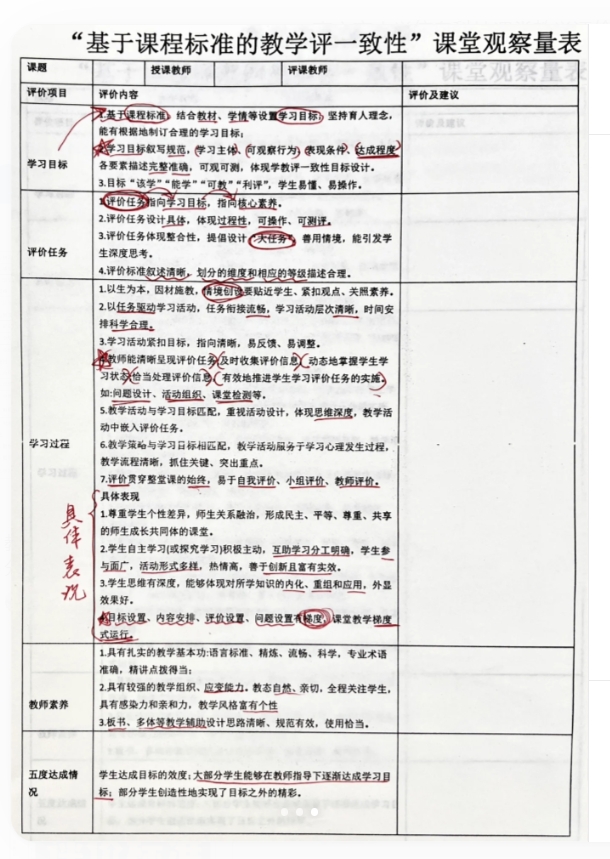 “基于课程标准的教学评一致性”课堂观察量表
课题 授课教师 评课教师
评价项目 评价内容 评价及建议
学习目标
1.基于课程标准，结合教材、学情等设置学习目标，坚持育人理念，
能有根据地制订合理的学习目标；
2.学习目标叙写规范，(学习主体、(可观察行为)、(表现条件)、(达成程度)
各要素描述完整准确，可观可测，体现学教评一致性目标设计。
3.目标“该学”“能学”“可教”“利评”，学生易懂、易操作。
评价任务
1.评价任务指向学习目标，指向核心素养。
2.评价任务设计具体，体现过程性，可操作、可测评。
3.评价任务体现整合性，提倡设计“大任务”，善用情境，能引发学
生深度思考。
4.评价标准叙述清晰，划分的维度和相应的等级描述合理。
学习过程
1.以生为本，因材施教，情境创设要贴近学生、紧扣观点、关照素养。
2.以任务驱动学习活动，任务衔接流畅，学习活动层次清晰，时间安
排科学合理。
3.学习活动紧扣目标，指向清晰，易反馈、易调整。
4.教师能清晰呈现评价任务，及时收集评价信息，动态地掌握学生学
习状态，恰当处理评价信息，有效地推进学生学习评价任务的实施。
如:问题设计、活动组织、课堂检测等。
5.教学活动与学习目标匹配，重视活动设计，体现思维深度，教学活
动中嵌入评价任务。
6.教学策略与学习目标相匹配，教学活动服务于学习心理发生过程，
教学流程清晰，抓住关键、突出重点。
7.评价贯穿整堂课的始终，易于自我评价、小组评价、教师评价。
具体表现
具体表现
1.尊重学生个性差异，师生关系融洽，形成民主、平等、尊重、共享
的师生成长共同体的课堂。
2.学生自主学习(或探究学习)积极主动，互助学习分工明确，学生参
与面广，活动形式多样，热情高，善于创新且富有实效。
3.学生思维有深度，能够体现对所学知识的内化、重组和应用，外显
效果好。
4.目标设置、内容安排、评价设置、问题设置有梯度，课堂教学梯度
式运行。
教师素养
1.具有扎实的教学基本功:语言标准、精炼、流畅、科学，专业术语
准确，精讲点拨得当；
2.具有较强的教学组织、应变能力。教态自然、亲切，全程关注学生，
具有感染力和亲和力，教学风格富有个性
3.板书、多体等教学辅助设计思路清晰、规范有效，使用恰当。
五度达成情
况
学生达成目标的效度：大部分学生能够在教师指导下逐渐达成学习目
标；部分学生创造性地实现了目标之外的精彩。